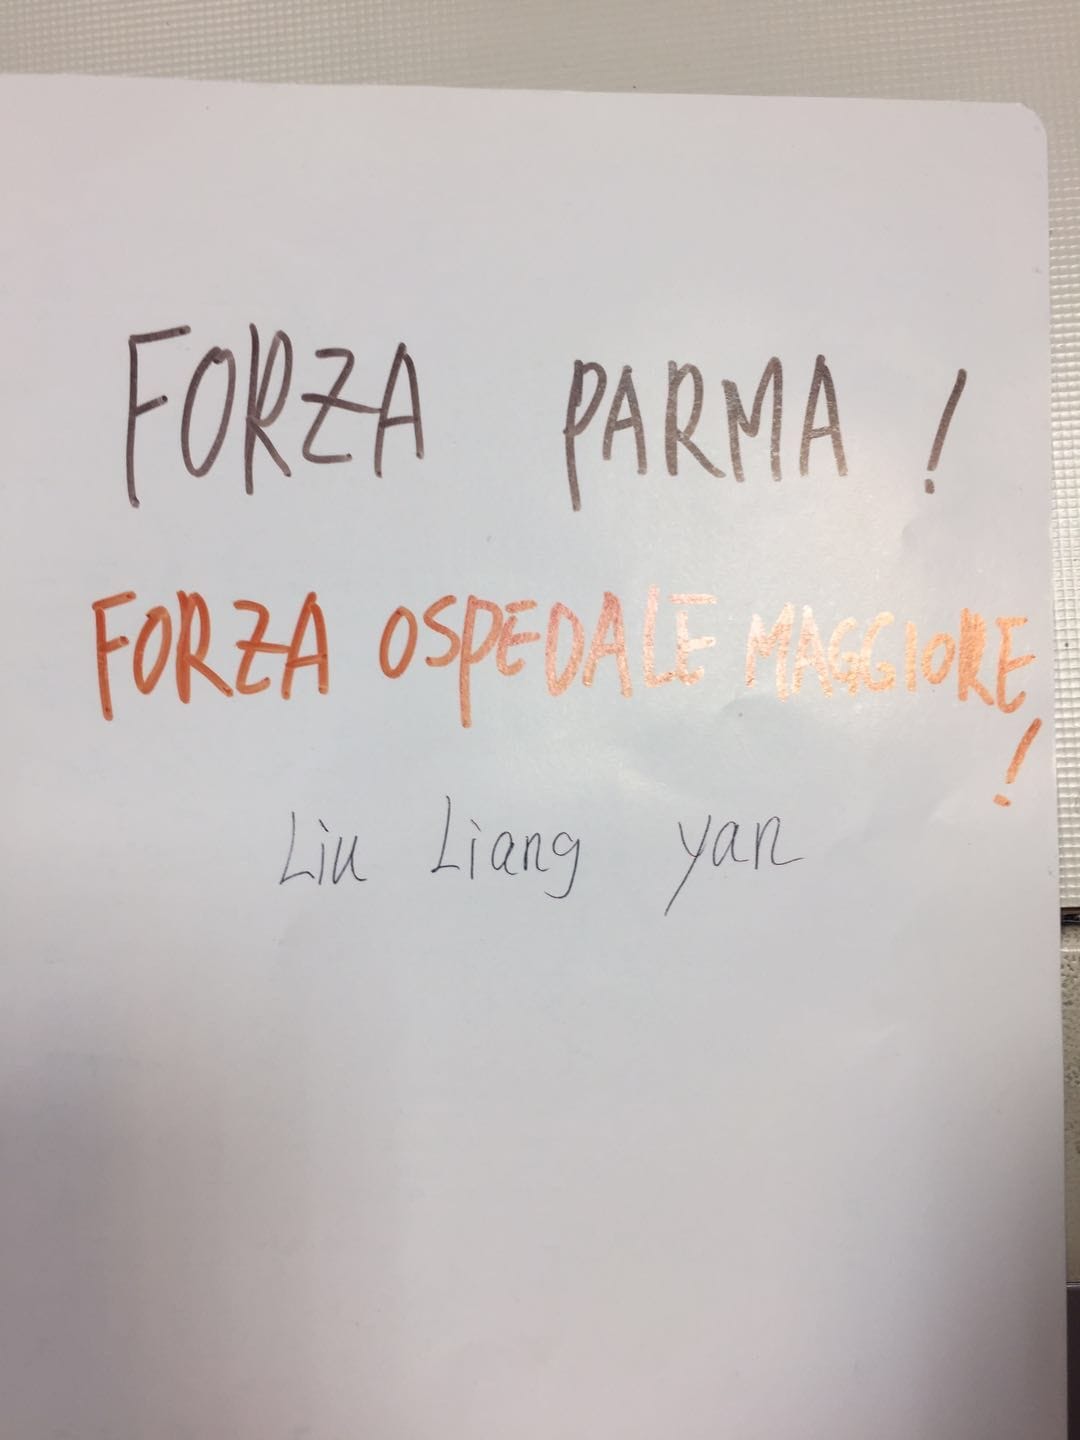 FORZA PARMA !
FORZA OSPEDALE MAGGIORE
!
Liu Liang yan